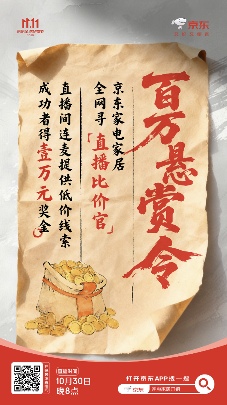 11.11
京东
百万悬赏令
京东家电家居
全网寻「直播比价官」
直播间连麦提供低价线索
成功者得壹万元奖金
10月30日
晚8点
打开京东APP搜一搜
京东